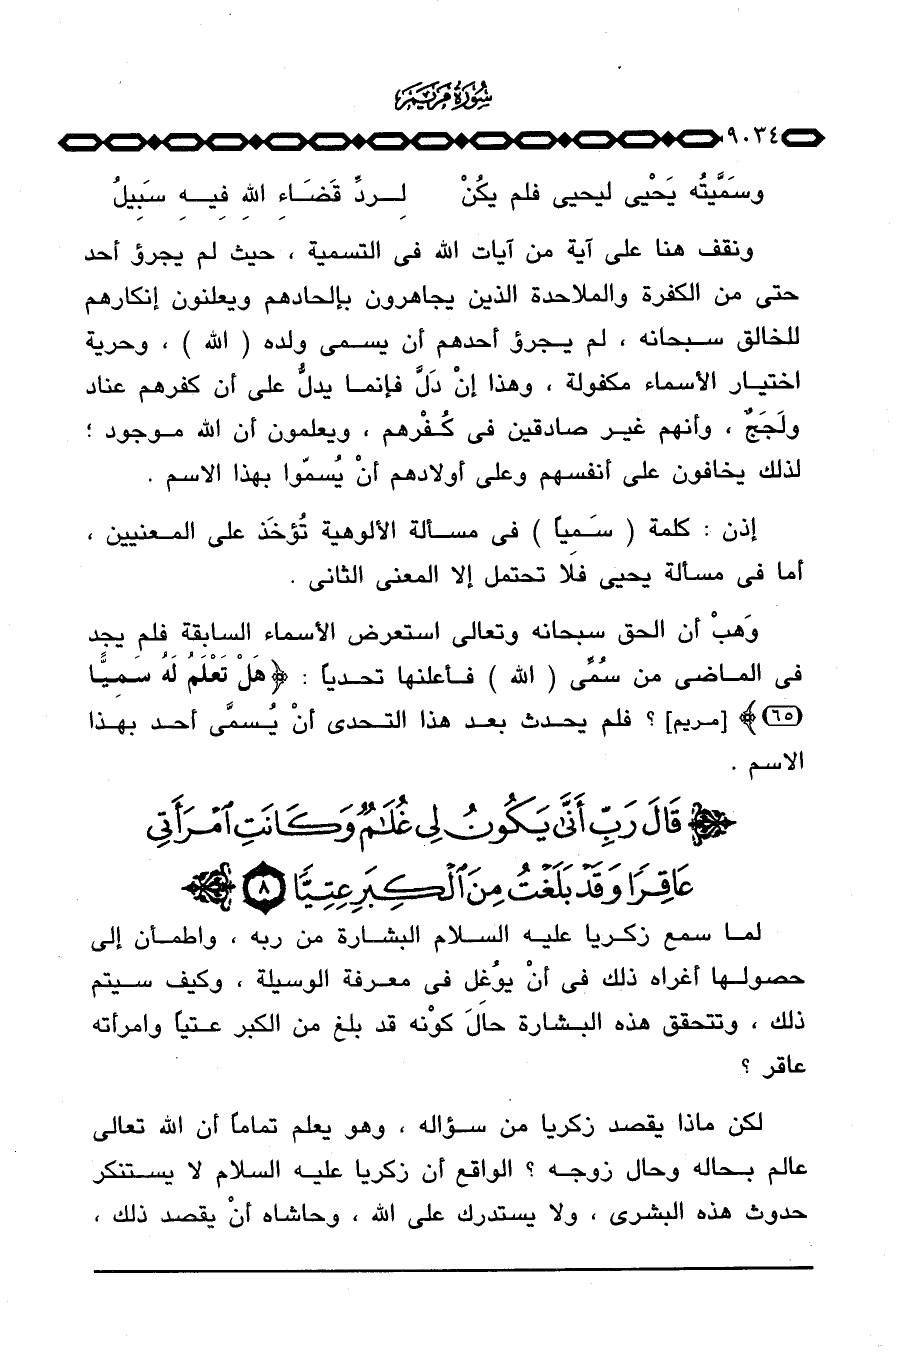 سُورَةُ مَرْيَمَ
٩٠٣٤
وسَمَّيتُه يَحْيى ليحيى فلم يكُنْ لــردِّ قَضَـاء الله فيــه سَبِيلُ
ونقف هنا على آية من آيات الله فى التسمية ، حيث لم يجرؤ أحد
حتى من الكفرة والملاحدة الذين يجاهرون بإلحادهم ويعلنون إنكارهم
للخالق سبحانه ، لم يجرؤ أحدهم أن يسمى ولده ( الله ) ، وحرية
اختيار الأسماء مكفولة ، وهذا إنْ دَلَّ فإنما يدلُّ على أن كفرهم عناد
ولَجَجٌ ، وأنهم غير صادقين فى كُفْرهم ، ويعلمون أن الله موجود ؛
لذلك يخافون على أنفسهم وعلى أولادهم أنْ يُسمّوا بهذا الاسم .
إذن : كلمة ( سَمِياً ) فى مسألة الألوهية تُؤخَذ على المعنيين ،
أما فى مسألة يحيى فلا تحتمل إلا المعنى الثانى .
وَهبْ أن الحق سبحانه وتعالى استعرض الأسماء السابقة فلم يجد
فى الماضى من سُمِّى ( الله ) فأعلنها تحدياً : ﴿هَلْ تَعْلَمُ لَهُ سَمِيًّا
(٦٥)﴾ [مريم] ؟ فلم يحدث بعد هذا التحدى أنْ يُسمَّى أحد بهذا
الاسم .
﴿ قَالَ رَبِّ أَنَّىٰ يَكُونُ لِى غُلَـٰمٌ وَكَانَتِ ٱمْرَأَتِى
عَاقِرًا وَقَدْ بَلَغْتُ مِنَ ٱلْكِبَرِ عِتِيًّا ٨ ﴾
لما سمع زكريا عليه السلام البشارة من ربه ، واطمأن إلى
حصولها أغراه ذلك فى أنْ يُوغل فى معرفة الوسيلة ، وكيف سيتم
ذلك ، وتتحقق هذه البشارة حالَ كوْنه قد بلغ من الكبر عتياً وامرأته
عاقر ؟
لكن ماذا يقصد زكريا من سؤاله ، وهو يعلم تماماً أن الله تعالى
عالم بحاله وحال زوجه ؟ الواقع أن زكريا عليه السلام لا يستنكر
حدوث هذه البشرى ، ولا يستدرك على الله ، وحاشاه أنْ يقصد ذلك ،